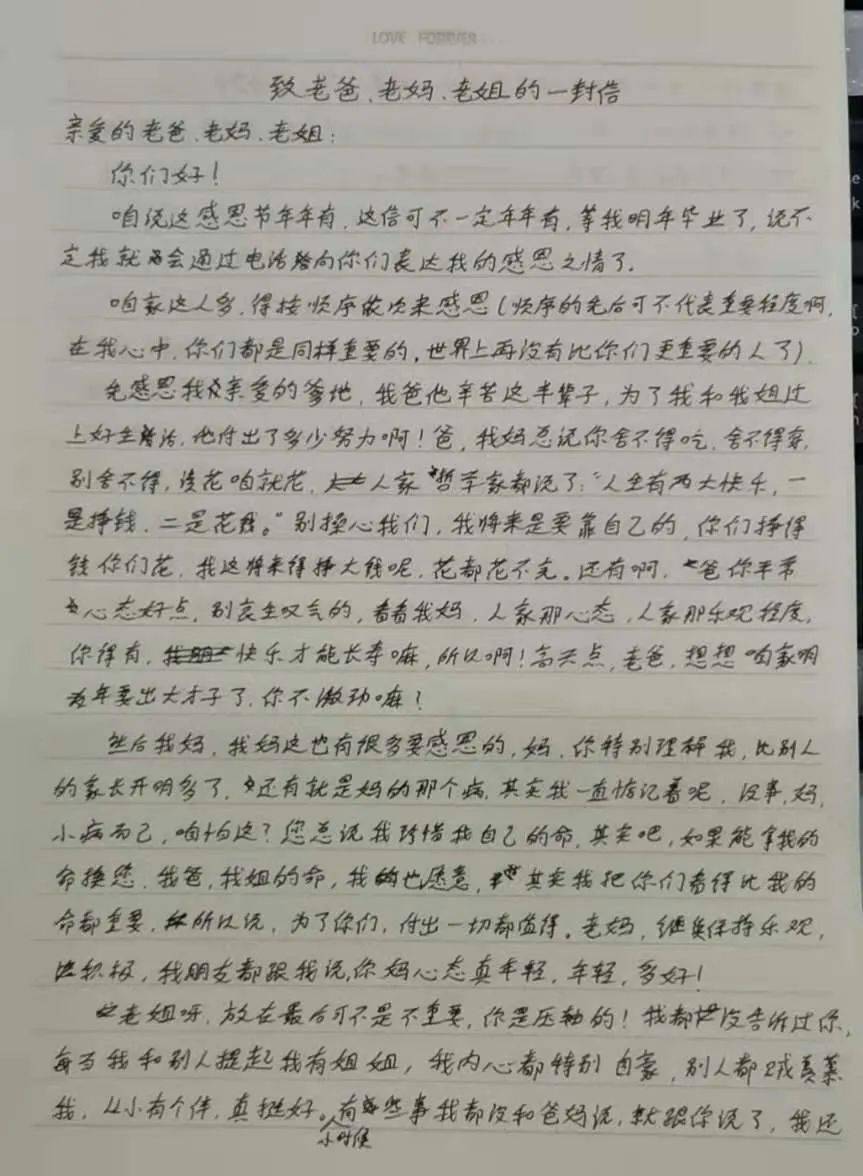 LOVE FOREVER
致老爸、老妈、老姐的一封信
亲爱的老爸、老妈、老姐：
你们好！
咱说这感恩节年年有，这信可不一定年年有，等我明年毕业了，说不
定我就会通过电话向你们表达我的感恩之情了。
咱家这人多，得按顺序依次来感恩（顺序的先后可不代表重要程度啊，
在我心中，你们都是同样重要的，世界上再没有比你们更重要的人了）。
先感恩我亲爱的爹地，我爸他辛苦这半辈子，为了我和我姐过
上好生活，他付出了多少努力啊！爸，我妈总说你舍不得吃，舍不得穿，
别舍不得，该花咱就花，人家哲学家都说了：“人生有两大快乐，一
是挣钱、二是花钱。”别操心我们，我将来是要靠自己的，你们挣得
钱你们花，我这将来得挣大钱呢，花都花不完。还有啊，爸你平常
心态好点，别哀生叹气的，看看我妈，人家那心态，人家那乐观程度，
你得有，快乐才能长寿嘛，所以啊！高兴点，老爸，想想咱家明
年要出大才子了，你不激动嘛？
然后我妈，我妈这也有很多要感恩的，妈，你特别理解我，比别人
的家长开明多了，还有就是妈的那个病，其实我一直惦记着呢，没事，妈，
小病而已，咱怕这？您总说我珍惜我自己的命，其实吧，如果能拿我的
命换您、我爸，我姐的命，我也愿意，其实我把你们看得比我的
命都重要，所以说，为了你们，付出一切都值得。老妈，继续保持乐观，
积极，我朋友都跟我说，你妈心态真年轻，年轻，多好！
老姐呀，放在最后可不是不重要，你是压轴的！我都没告诉过你，
每当我和别人提起我有姐姐，我内心都特别自豪，别人都羡慕
我，从小有个伴，真挺好。小时候有些事我都没和爸妈说，就跟你说了，我还